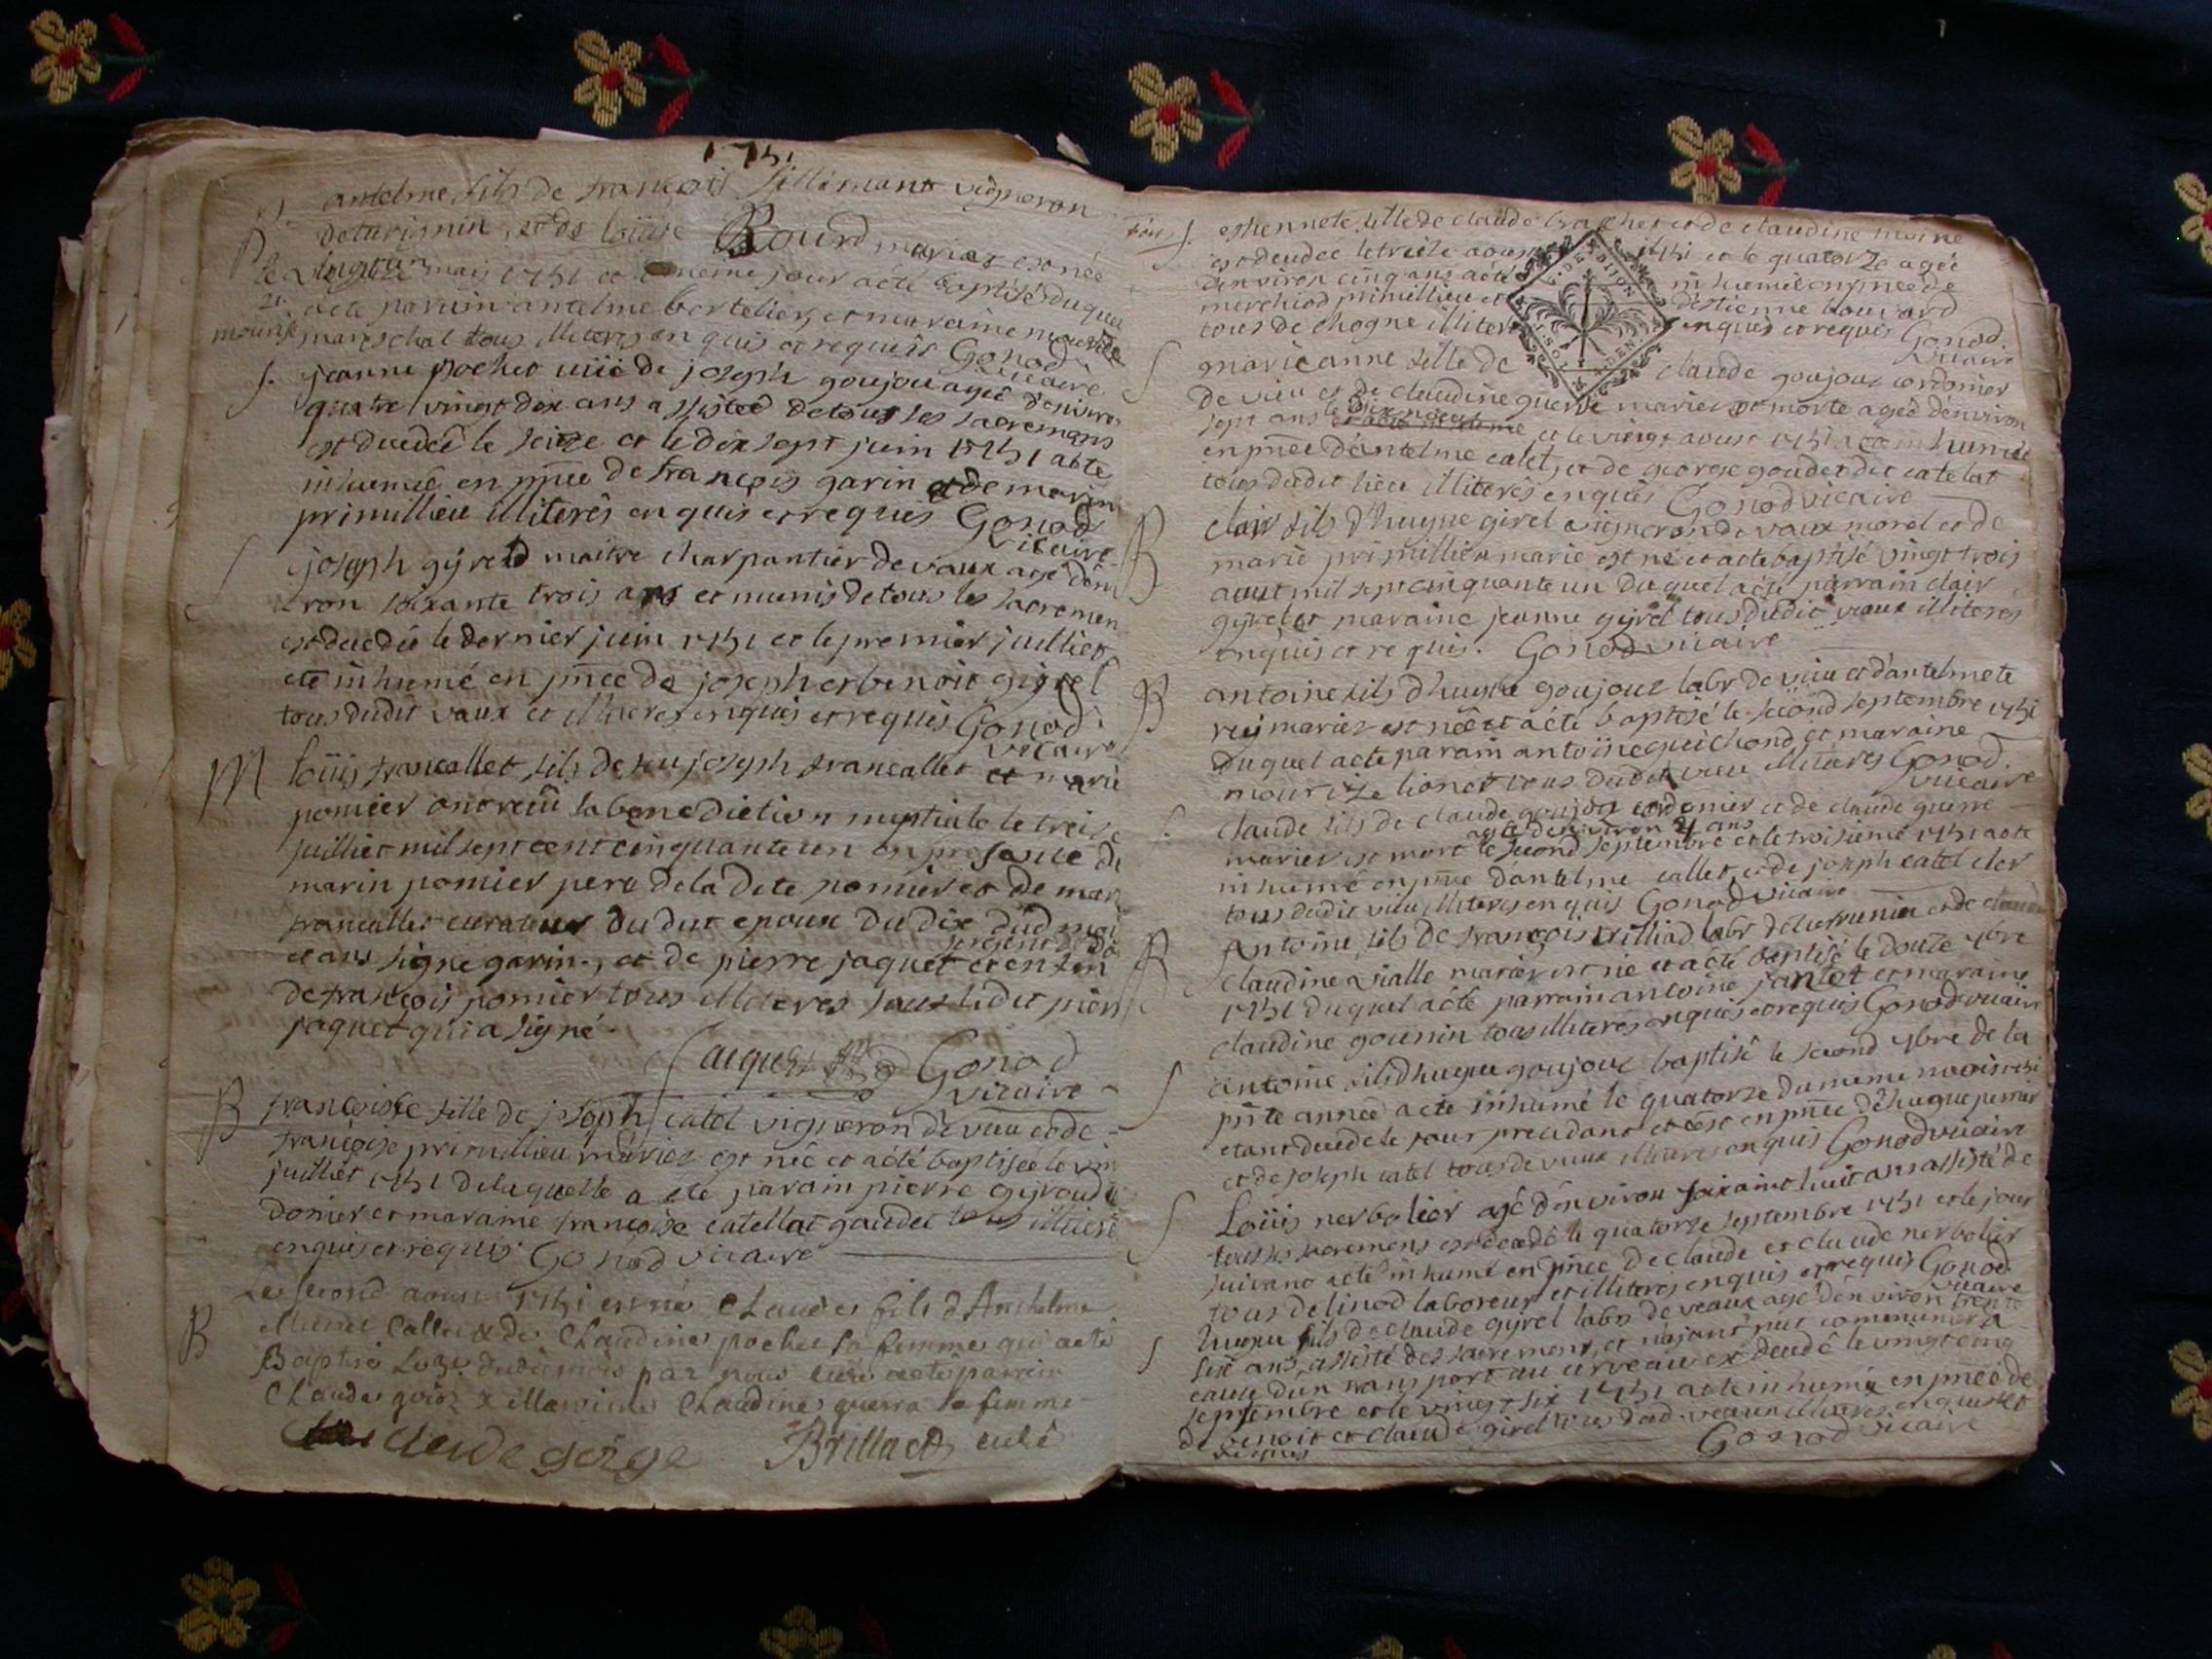 1751
B antelme fils de françois sillimant vigneron
de turignin, et de loüise Bourd mariez est née
le vingt un mais 1751 et le meme jour a été baptisé duquel
21. a été parain antelme bertelier, et maraine mourize
mourise mareschal tous illiterés enquis et requis Gonod
vicaire
S. jeanne pochet viie de joseph goujou agé d'environ
quatre vingt dix ans assistée de tous les sacremans
est decedeê le seize et le dix sept juin 1751 a été
inhumée en pnce de françois garin et de marin
primillieu illiterês enquis et requis Gonod
vicaire
S joseph gyred maitre charpantier de vaux agé d'envi
ron soixante trois ans et munis de tous les sacremen
est decedé le dernier juin 1751 et le premier juilliet
eté inhumé en pnce de joseph et benoit gigrel
tous dudit vaux et illiteres enquis et requis Gonod
vicaire
M loüis francallet fils de feu joseph francallet et marie
pomier ont reçû la benediction nuptiale le treize
juilliet mil sept cent cinquante un en presance de
marin pomier pere de la dete pomier et de mar
francallet curateur du dut epoux du dix dud moi
et ans signe garin., et de pierre jaquet et enfin
de françois pomier tous illiteres saus ledit pierr
jaquet qui a signé.
Jacques Gonod
vicaire
B françoise fille de joseph catel vigneron de vieu et de
françoise primillieu mariez est née et a été baptisée le vin
juilliet 1751 de laquelle a eté parain pierre gyroud
donier et maraine françoise catellat goudet tous illiteré
enquis et requis Gonod vicaire
Le second aoust 1751 est né Claude fils d'Anthelme
B Callet & de Claudine pochet sa femme qui a eté
Baptisé le 3e. dudit mois par nous curé a eté parrein
Claude goiz & Marreine Claudine guerra sa femme
claude goige Brillat curé
S. estiennete fille de claude brachet et de claudine moine
est decedeé le treize aoust 1751 et le quatorze ageé
d'environ cinq ans a été inhumée en pnce de
merchiod primillieu et d'estienne bouvard
tous de chogne illiterés enquis et requis Gonod.
vicaire
S marie anne fille de claude goujouz cordonier
de vieu et de claudine guerre mariez est morte ageé d'environ
sept ans le dix neuf et le vingt aoust 1751 a été inhumée
en pnce d'antelme calet, et de george goudet dit catelat
tous dudit lieu illiterés enquis Gonod vicaire
B clair fils d'hugue girel vigneron de vaux morel et de
marie primillieu marie est né et a eté baptisé vingt trois
aout mil sept cinquante un duquel a été parrain clair
gyrel et maraine jeanne gyrel tous dudit vaux illiteres
enquis et requis. Gonod vicaire
B antoine fils d'hugue goujouz labr de vieu et d'antelmete
rey mariez est née et a été baptisé le second septembre 1751
duquel a eté parain antoine guichond et maraine
mourize lionet tous dudit vieu illiterés Gonod.
vicaire
S. claude fils de claude goujoz cordonier et de claude guerre
agé d'environ 4 ans
mariez est mort le second septembre et le troisiemé 1751 a eté
inhumé en pnce d'antelme callet, et de joseph catel cler
tous dudit vieu illiteres enquis Gonod vicaire
B Antoine fils de françois trilliad labr de et de claud
claudine vialle mariez est né et a eté baptisé le douze 7bre
1751 duquel a été parrain antoine jantet et maraine
claudine gounin tous illiteres enquis et requis Gonod vicaire
S antoine fils d'hugue goujouz baptisé le second 7bre de la
pnte anneé a été inhumé le quatorze du meme mois 1751
etant decedé le jour precedant et c'est en pnce d'hugue perrier
et de joseph catel tous de vieux illiteres enquis Gonod vicaire
S Loüis nerbolier agé d'environ soixante huit ans assisté de
tous les sacremens est decedê le quatorze septembre 1751 et le jour
suivant a eté inhumé en pnce de claude et claude nerbolier
tous de linod laboreur et illiterés enquis et requis Gonod.
vicaire
S hugue fils de claude gyrel labr de veaux agé d'environ trente
six ans assisté des sacremens, et n'ajant put communier a
cause d'un transport au cerveau est decedê le vingt cinq
septembre et le vingt six 1751 a eté inhumé en pnce de
de benoit et claude girel tous dud. veaux illiteres enquis et
requis Gonod vicaire